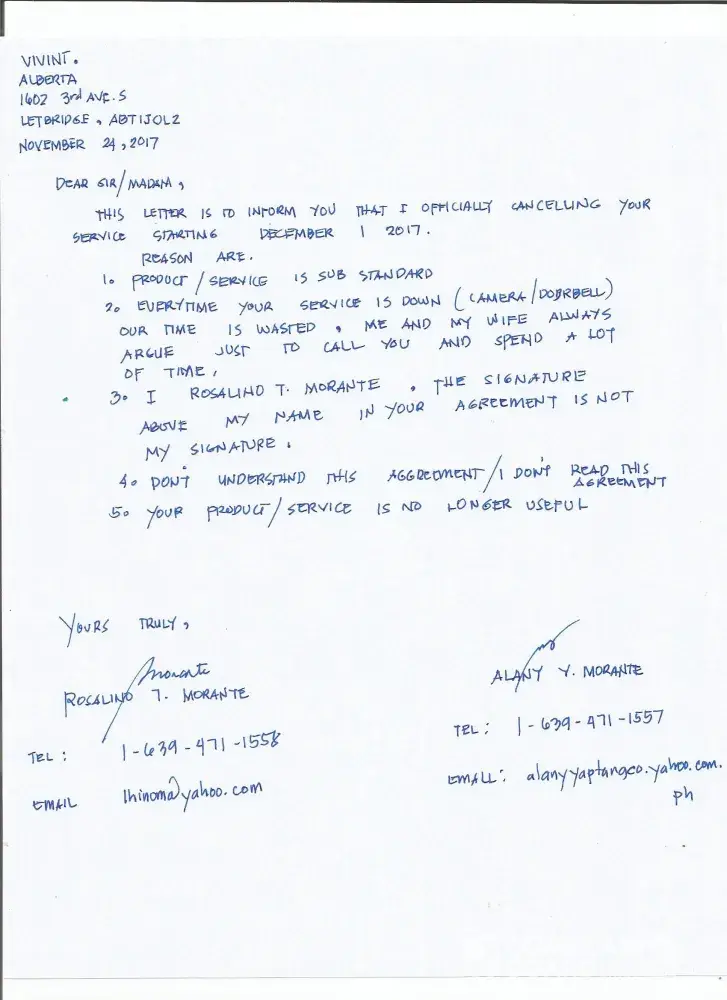 VIVINT.
ALBERTA
1602 3rd AVE. S
LETBRIDGE, ABTIJOL2
NOVEMBER 24, 2017
DEAR SIR/MADAM,
THIS LETTER IS TO INFORM YOU THAT I OFFICIALLY CANCELLING YOUR
SERVICE STARTING DECEMBER 1 2017.
REASON ARE.
1. PRODUCT/SERVICE IS SUB STANDARD
2. EVERYTIME YOUR SERVICE IS DOWN (CAMERA/DOORBELL)
OUR TIME IS WASTED, ME AND MY WIFE ALWAYS
ARGUE JUST TO CALL YOU AND SPEND A LOT
OF TIME,
3. I ROSALINO T. MORANTE. THE SIGNATURE
ABOVE MY NAME IN YOUR AGREEMENT IS NOT
MY SIGNATURE.
4. DON'T UNDERSTAND THIS AGGREEMENT/I DON'T READ THIS
AGREEMENT
5. YOUR PRODUCT/SERVICE IS NO LONGER USEFUL
YOURS TRULY,
Morante
ROSALINO T. MORANTE
TEL: 1-639-471-1558
EMAIL lhinoma@yahoo.com
ALANY Y. MORANTE
TEL: 1-639-471-1557
EMALL: alanyyaptangco.yahoo.com.
ph